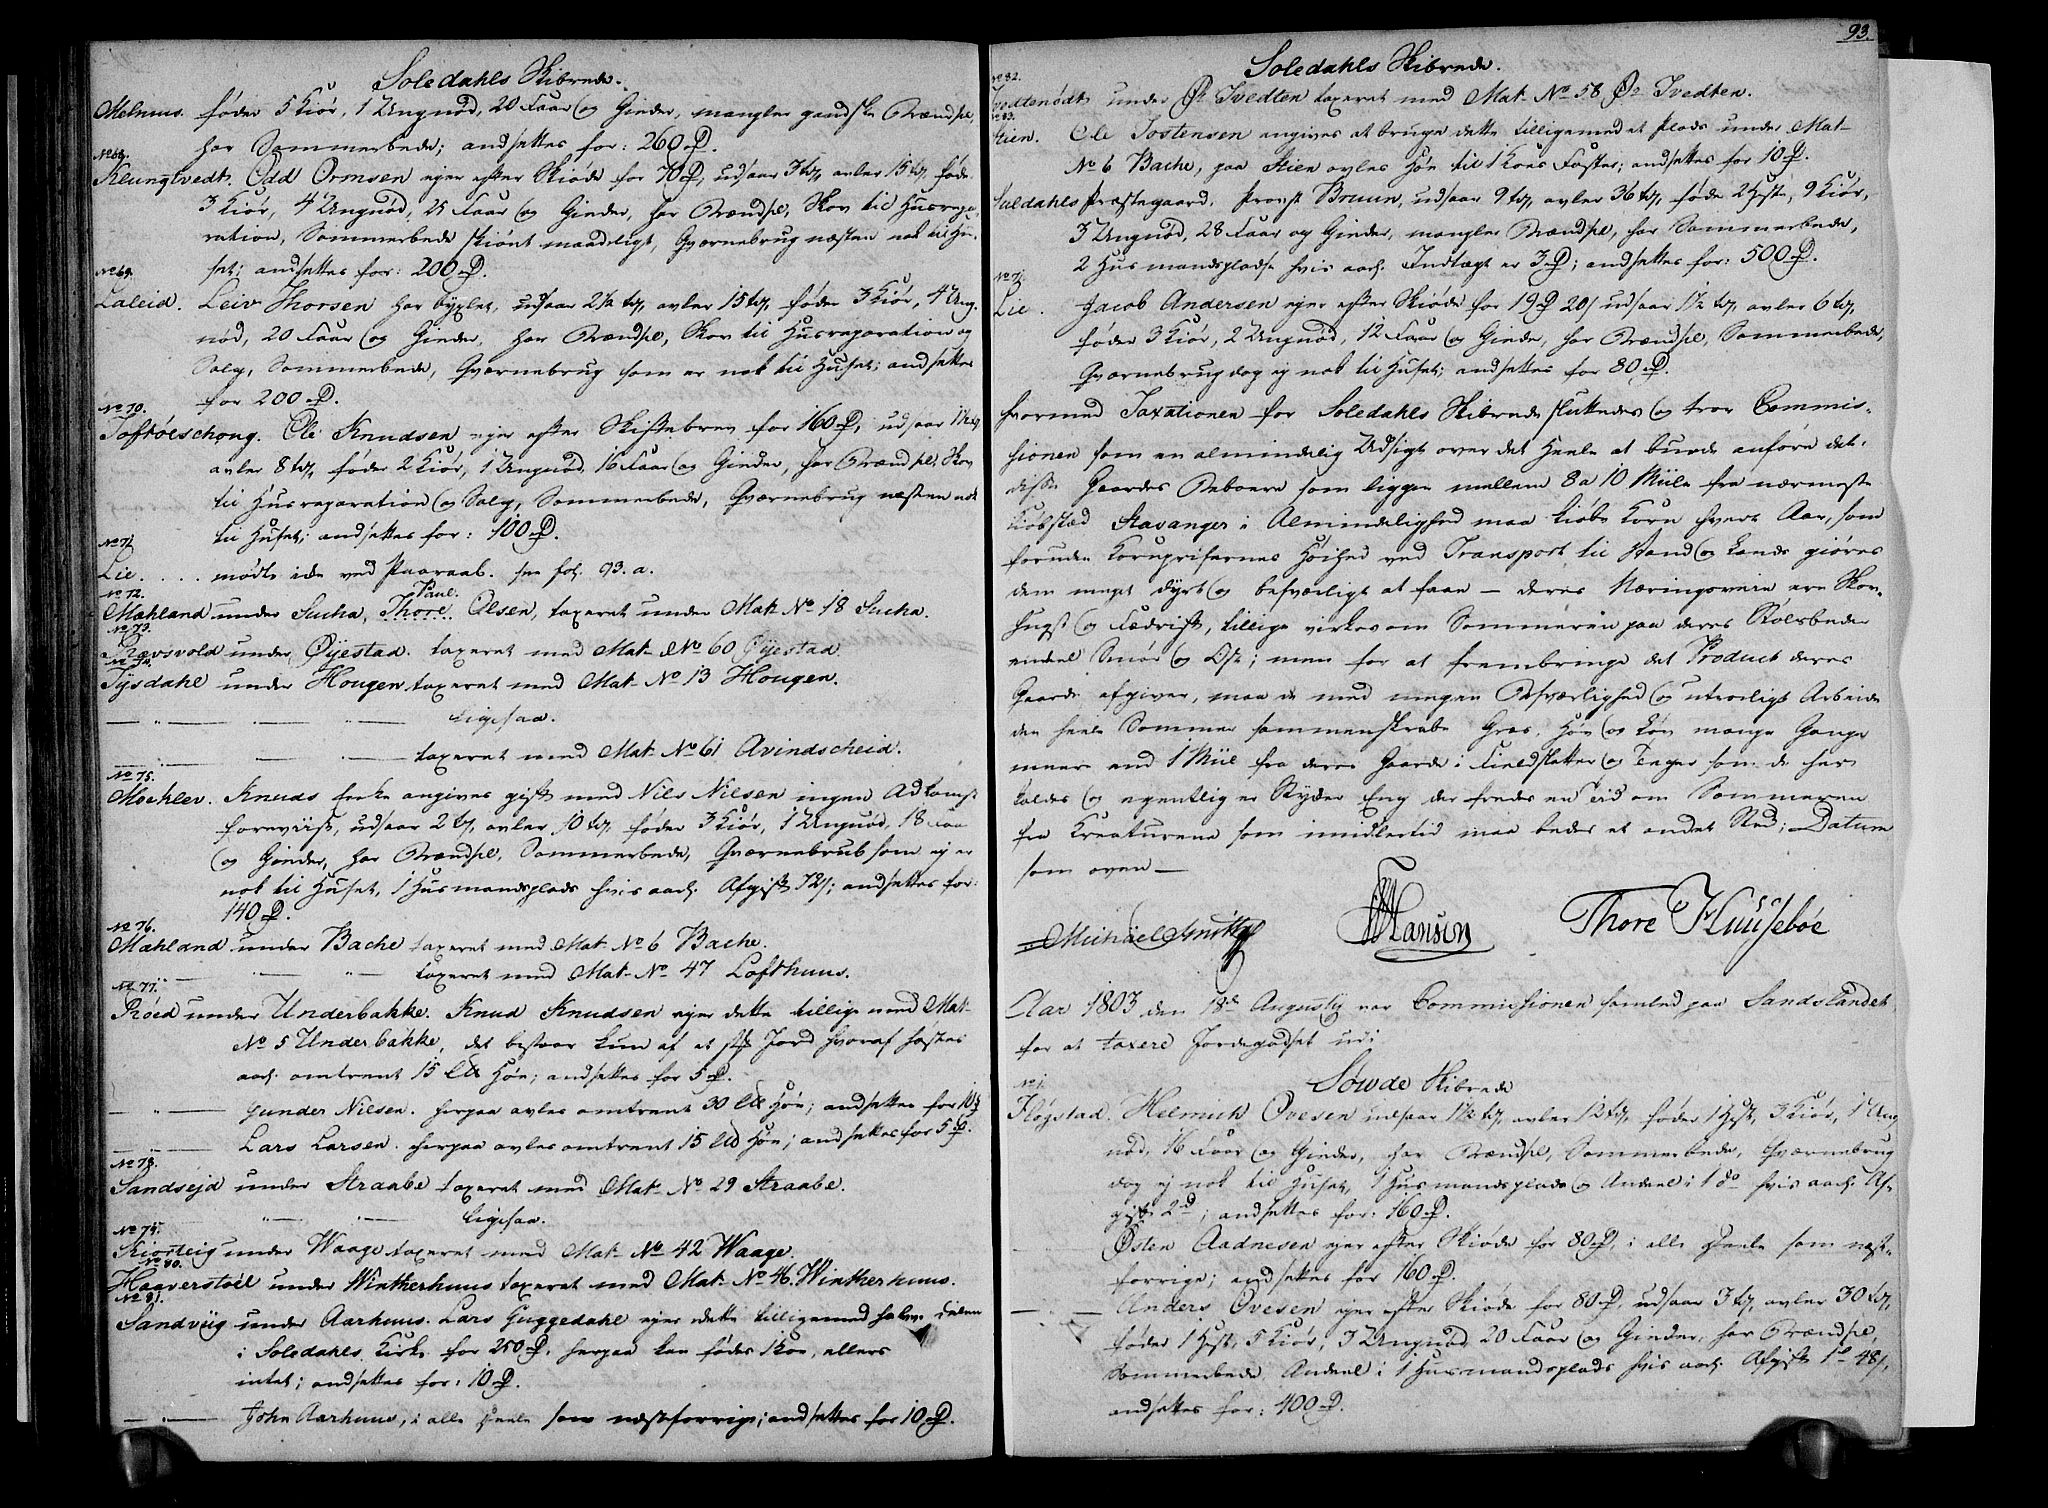 Soledahls Skibrede.
Melhuus. føder 5 Kiør, 1 Ungnød, 20 Faar og Gieder, mangler gandske Brændsel,
har Sommerbede; andsettes for: 260 D.
No 68.
Klungtvedt. Odd Ormsen ejer efter Skiøde for 70 D, udsaar 3 td, avler 15 td, føder
3 Kiør, 4 Ungnød, 25 Faar og Gieder, har Brændsel, Skov til Husrepa-
ration, Sommerbede skiønt maadeligt, Qværnebrug næsten nok til Hu-
set; andsettes for: 200 D.
No 69.
Laleid. Leiv Thorsen har byxlet, udsaar 2½ td, avler 15 td, føder 3 Kiør, 4 Ung-
nød, 20 Faar og Gieder, har Brændsel, Skov til Husreparation og
Salg, Sommerbede, Qværnebrug som er nok til Huset; andsettes
for 200 D.
No 70.
Toftølschong. Ole Knudsen ejer efter Skiftebrev for 160 D, udsaar
avler 8 td, føder 2 Kiør, 1 Ungnød, 16 Faar og Gieder, har Brændsel, Skov
til Husreparation og Salg, Sommerbede, Qværnebrug næsten nok
til Huset; andsettes for: 100 D.
No 71
Lie. . . . . mødte ikke ved Paaraab. see fol. 93. a.
No 72. Paul
Mæhland under Sucha, Thore Olsen, taxeret under Mat. No 18 Sucha.
No 73.
Rævsvold under Øyestad. taxeret med Mat. No 60 Øyestad
No 74.
Tysdahl under Hougen taxeret med Mat. No 13 Hougen.
— " — — " — ligesaa.
— " — — " — taxeret med Mat. No 61 Avindscheid.
No 75.
Moehlev. Knuds Enke angives gift med Nils Nilsen ingen Adkomst
foreviist, udsaar 2 td, avler 10 td, føder 3 Kiør, 1 Ungnød, 18 Faar
og Gieder, har Brændsel, Sommerbede, Qværnebrug som ej er
nok til Huset, 1 Husmandsplads hvis aarl. Afgift 72 s; andsettes for:
140 D.
No 76.
Mæhland under Bache taxeret med Mat. No 6 Bache.
— " — — " — taxeret med Mat. No 47 Lofthuus.
No 77.
Røed under Underbakke. Knud Knudsen ejer dette tillige med Mat.
No 5 Underbakke, det bestaar kun af et stk Jord hvoraf høstes
aarl. omtrent 15 Læs Høe; andsettes for 5 D.
— " — Gunder Nilsen. herpaa avles omtrent 30 Læs Høe; andsettes for 10 D
— " — Lars Larsen. herpaa avles omtrent 15 Læs Høe; andsettes for 5 D.
No 78.
Sandsejd under Straabe taxeret med Mat. No 29 Straabe.
— " — — " — ligesaa.
No 79.
Kiorteig under Waage taxeret med Mat. No 42 Waage.
No 80.
Haaverstøll under Wintherhuus taxeret med Mat. No 46. Wintherhuus.
No 81.
Sandviig under Aarhuus. Lars Guggedahl ejer dette tilligemed halve Delen
i Soledahls Kirke for 250 D. herpaa kan fødes 1 Koe, ellers
intet; andsettes for: 10 D.
— " — John Aarhuus, i alle Deele som næstforrige; andsettes for 10 D.
93.
Soledahls Skibrede.
No 82.
Tvedtenødt under Ø. Tvedten taxeret med Mat. No 58 Ø. Tvedten.
No 83.
Stien. Ole Tostensen angives at bruge dette tilligemed et Plads under Mat-
No 6 Bache, paa Stien avles Høe til 1 Koes Foster; andsettes for 10 D.
Suldahls Præstegaard. Provst Bruun, udsaar 9 td, avler 36 td, føde 2 Heste, 9 Kiør,
3 Ungnød, 28 Faar og Gieder, mangler Brændsel, har Sommerbede,
2 Husmandspladse hvis aarl. Indtægt er 3 D; andsettes for: 500 D.
No 71.
Lie. Jacob Andersen ejer efter Skiøde for 19 D 20 s udsaar 1½ td, avler 6 td,
føder 3 Kiør, 2 Ungnød, 12 Faar og Gieder, har Brændsel, Sommerbede,
Qværnebrug dog ej nok til Huset; andsettes for 80 D.
hvormed Taxationen for Soledahls Skibrede sluttedes og troer Commis-
sionen som en almindelig Udsigt over det Heele at burde anføre det:
disse Gaardes Beboere som ligger mellem 8 a 10 Miile fra nærmeste
Kiøbstæd Stavanger i Almindelighed maa kiøbe Korn hvert Aar, som
foruden Kornprisernes Høihed ved Transport til Vands og Lands giøres
dem meget dyrt og besværligt at faae — deres Næringsveie ere Skov-
hugst og Fædrift, tillige virkes om Sommeren paa deres Stølsbeder
endeel Smør og Ost; men for at frembringe det Product deres
Gaarde afgiver, maa de med megen Besværlighed og utroeligt Arbeide
den heele Sommer sammenskrabe Græs, Høe og Løv mange Gange
meere end 1 Miil fra deres Gaarde i Fieldslatter og Teiger som de her
kaldes og egentlig er Stykker Eng der fredes en Tiid om Sommeren
fra Kreaturene som imidlertid maa bedes et andet Sted; Datum
som oven —
Michael Smith Hansen Thore Huusebøe
Aar 1803 den 18de Augusty var Commissionen samled paa Sandslandet
for at taxere Jordegodset udi
Søwde Skibrede
No 1.
Fløgstad. Helmich Ovesen udsaar 1½ td, avler 12 td, føder 1 Hest, 3 Kiør, 1 Ung-
nød, 16 Faar og Gieder, har Brændsel, Sommerbede, Qværnebrug
dog ej nok til Huset, 1 Husmandsplads og Andeel i 1 do hvis aarl. Af-
gift 2 D; andsettes for: 160 D.
— " — Østen Aadnesen ejer efter Skiøde for 80 D, i alle Deele som næst-
forrige; andsettes for 160 D.
— " — Anders Ovesen ejer efter Skiøde for 80 D, udsaar 3 td, avler 30 td,
føder 1 Hest, 5 Kiør, 3 Ungnød, 20 Faar og Gieder, har Brændsel,
Sommerbede, Andeel i 1 Husmandsplads hvis aarl. Afgift 1 D 48 s,
andsettes for: 400 D.